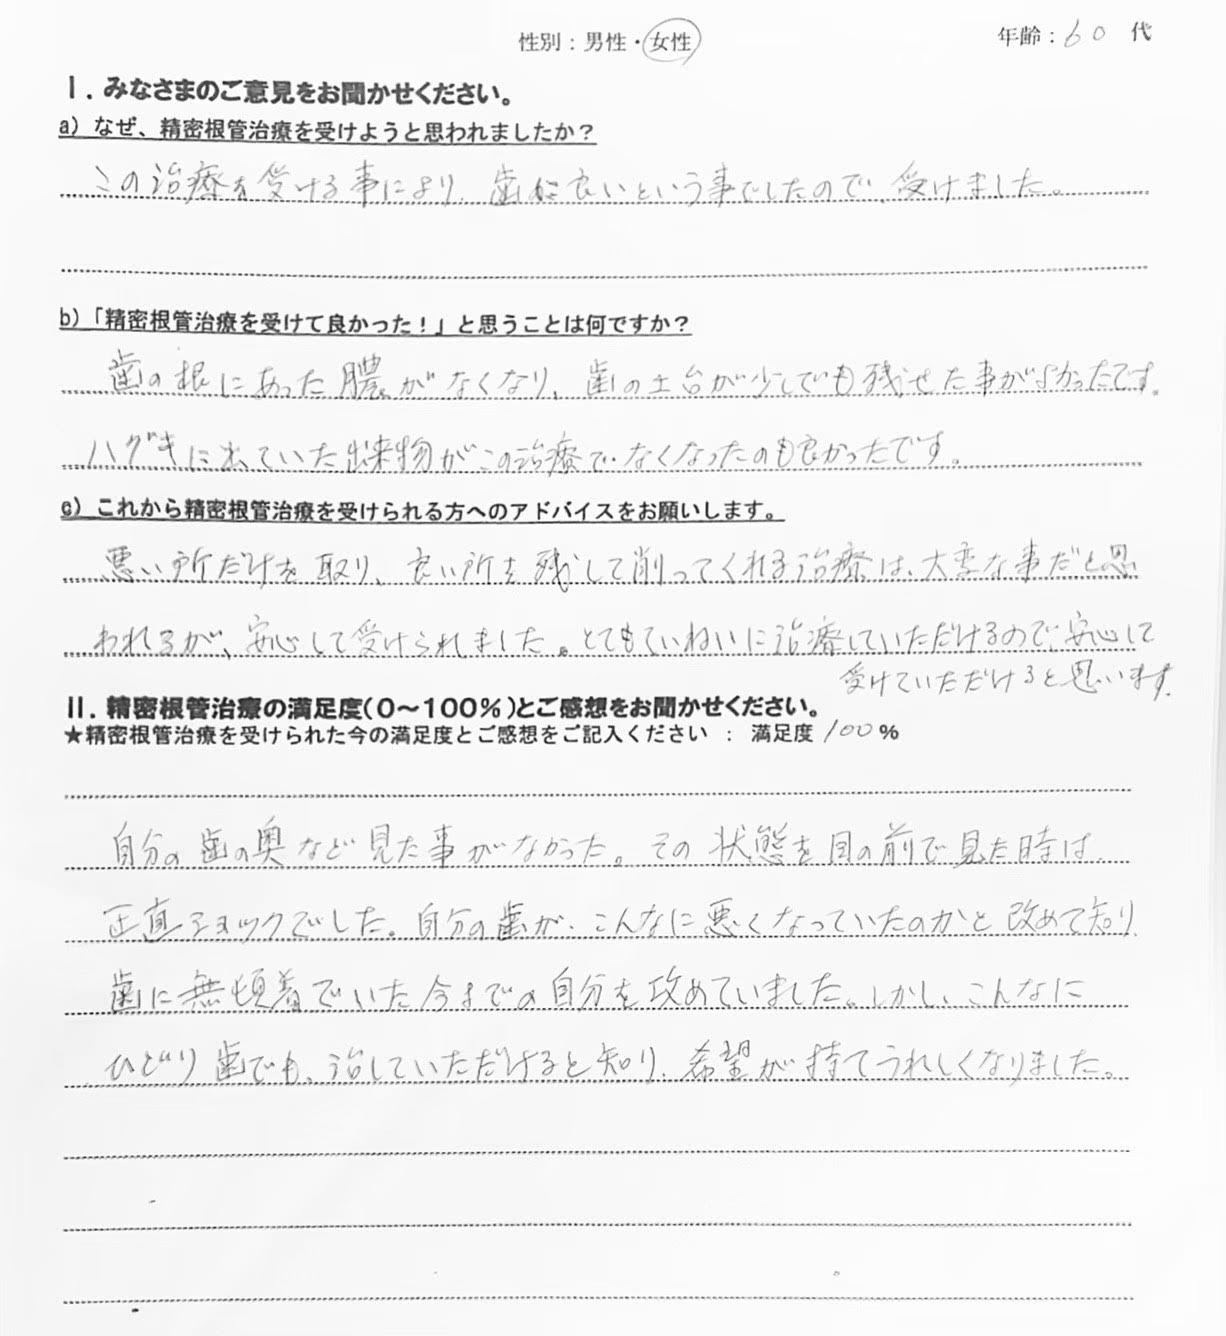 性別：男性・女性 年齢：60 代
Ⅰ．みなさまのご意見をお聞かせください。
a）なぜ、精密根管治療を受けようと思われましたか？
この治療を受ける事により、歯に良いという事でしたので、受けました。
b）「精密根管治療を受けて良かった！」と思うことは何ですか？
歯の根にあった膿がなくなり、歯の土台が少しでも残せた事がよかったです。
ハグキに出ていた出来物がこの治療で、なくなったのも良かったです。
c）これから精密根管治療を受けられる方へのアドバイスをお願いします。
悪い所だけを取り、良い所を残して削ってくれる治療は、大変な事だと思
われるが、安心して受けられました。とてもていねいに治療していただけるので、安心して
受けていただけると思います。
Ⅱ．精密根管治療の満足度（0～100％）とご感想をお聞かせください。
★精密根管治療を受けられた今の満足度とご感想をご記入ください ： 満足度 100 %
自分の歯の奥など見た事がなかった。その状態を目の前で見た時は、
正直ショックでした。自分の歯が、こんなに悪くなっていたのかと改めて知り、
歯に無頓着でいた今までの自分を攻めていました。しかし、こんなに
ひどり歯でも、治していただけると知り、希望が持てうれしくなりました。